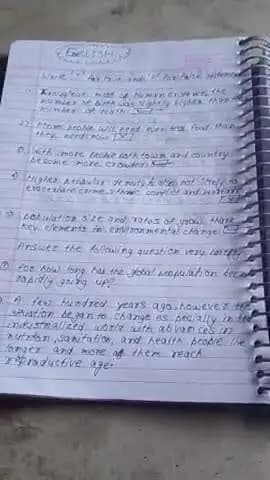 ENGLISH
Write "T" for true and "F" for false statements
Throughout most of human existence, the
number of birth was slightly higher than
number of death.
people will need even less food than
they need now
With more people both town and country
become more crowded
Higher density is also not likely to
crime, conflict and
population size and rates of grow than
key elements in environmental change
Answer the following question very briefly
For how long has the global population been
rapidly going up?
A few hundred years ago, however the
situation began to change especially in the
industrialized world with advances in
nutrition, sanitation, and health people live
longer and more of them reach
reproductive age.